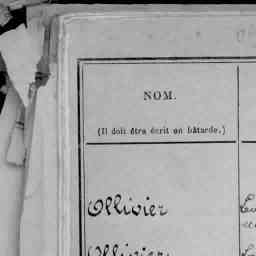 NOM.
(Il doit être écrit en bâtarde.)
Ollivier
Ollivier